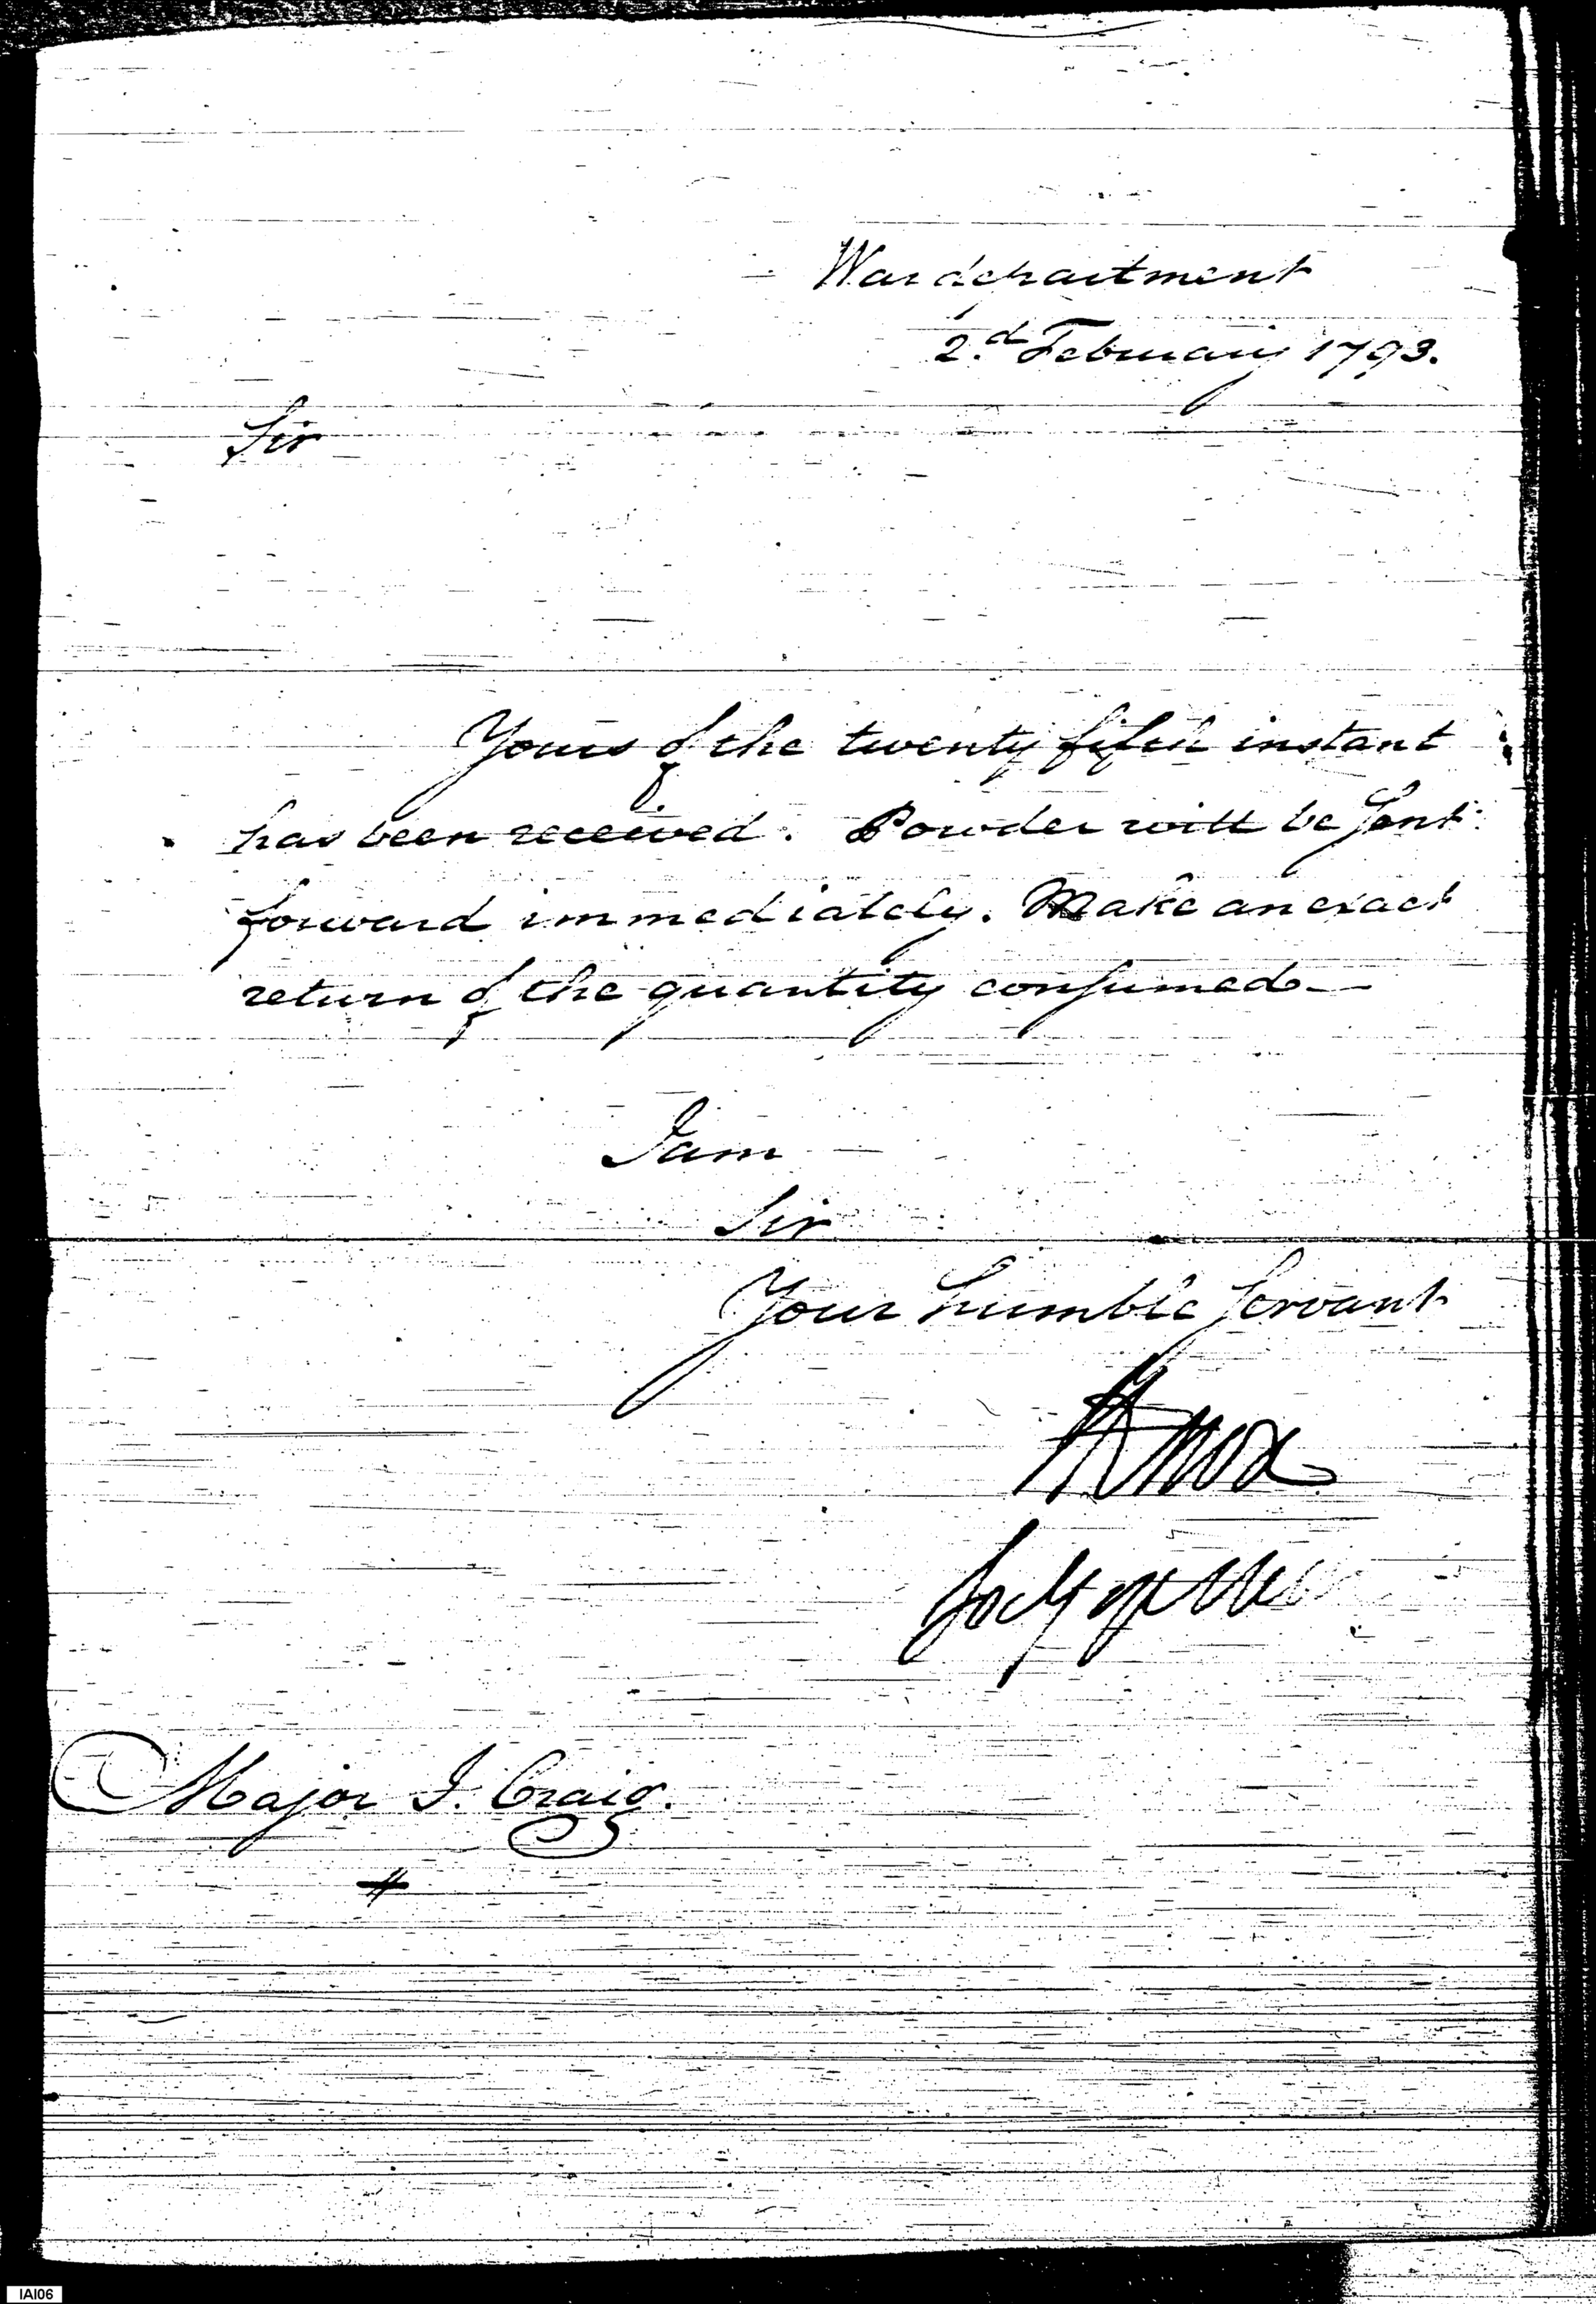 War department
2.d February 1793.
Sir
Yours of the twenty fifth instant
has been received. Powder will be sent
forward immediately. Make an exact
return of the quantity consumed
I am
Sir
Your humble servant
HKnox
Secy of War
Major I. Craig.
IAI06